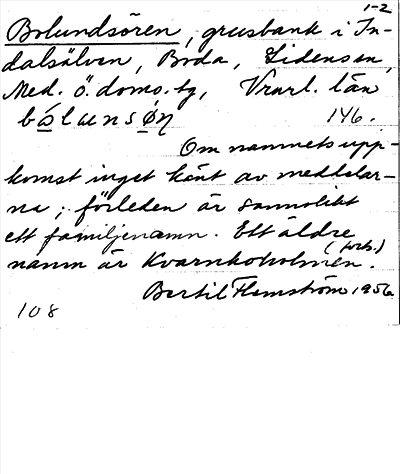 1-2
Bolundsören, grusbank i In-
dalsälven, Boda, Lidens sn,
Med. ö. doms. tg, Vnrl. län
bólunsǿn 146.
Om namnets upp-
komst inget känt av meddelar-
na; förleden är sannolikt
ett familjenamn. Ett äldre
namn är Kvarnkoholmen.
Bertil Flemström 1956
108